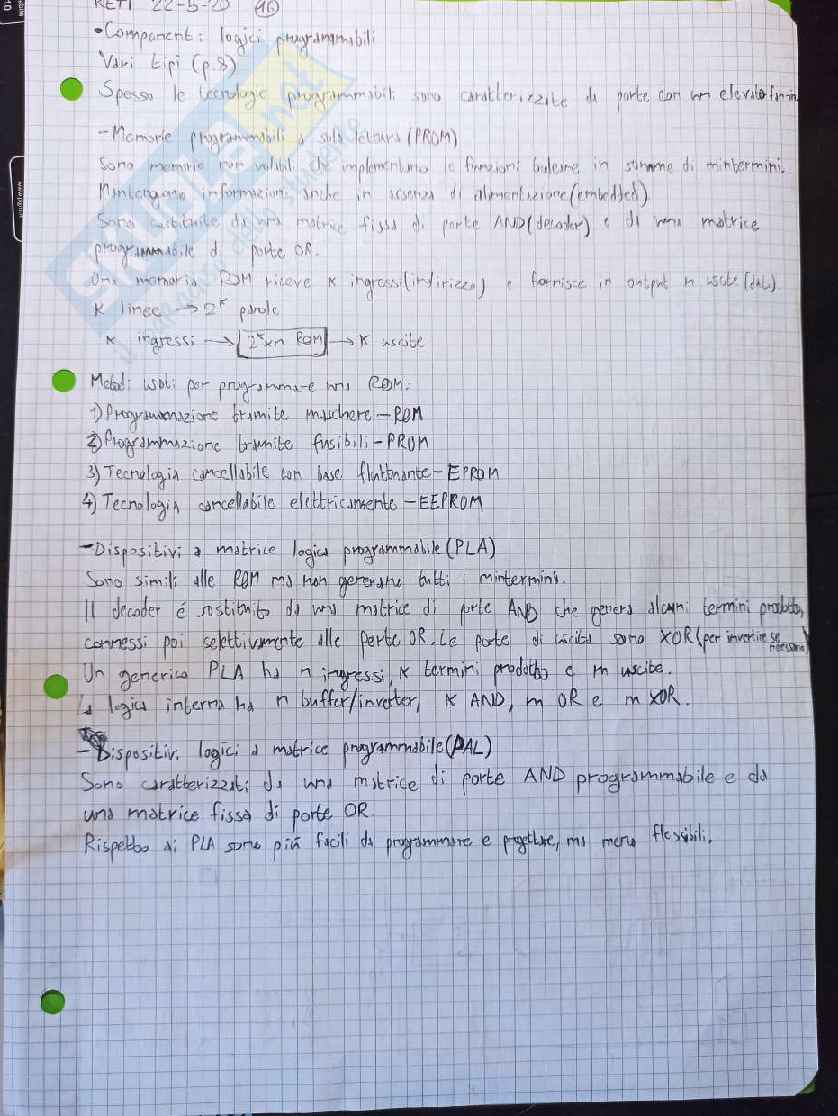 RETI 22-5-20 (16)
•Componenti logici programmabili
Vari tipi (p.8)
Spesso le tecnologie programmabili sono caratterizzate da porte con un elevato fan-in
-Memorie programmabili a sola lettura (PROM)
Sono memorie non volatili che implementano le funzioni booleane in somme di mintermini.
Mantengono informazioni anche in assenza di alimentazione (embedded)
Sono costituite da una matrice fissa di porte AND (decoder) e di una matrice
programmabile di porte OR.
Una memoria ROM riceve k ingressi (indirizzo) e fornisce in output n uscite (dati).
K linee → 2^k parole
k ingressi → 2^k x n ROM → k uscite
Metodi usati per programmare una ROM:
1) Programmazione tramite maschere - ROM
2) Programmazione tramite fusibili - PROM
3) Tecnologia cancellabile con base fluttuante - EPROM
4) Tecnologia cancellabile elettricamente - EEPROM
-Dispositivi a matrice logica programmabile (PLA)
Sono simili alle ROM ma non generano tutti i mintermini.
Il decoder é sostituito da una matrice di porte AND che genera alcuni termini prodotto,
connessi poi selettivamente alle porte OR. Le porte di uscita sono XOR (per invertire se necessario)
Un generico PLA ha n ingressi, k termini prodotto e m uscite.
La logica interna ha n buffer/inverter, k AND, m OR e m XOR.
-Dispositivi logici a matrice programmabile (PAL)
Sono caratterizzati da una matrice di porte AND programmabile e da
una matrice fissa di porte OR
Rispetto ai PLA sono più facili da programmare e progettare, ma meno flessibili.